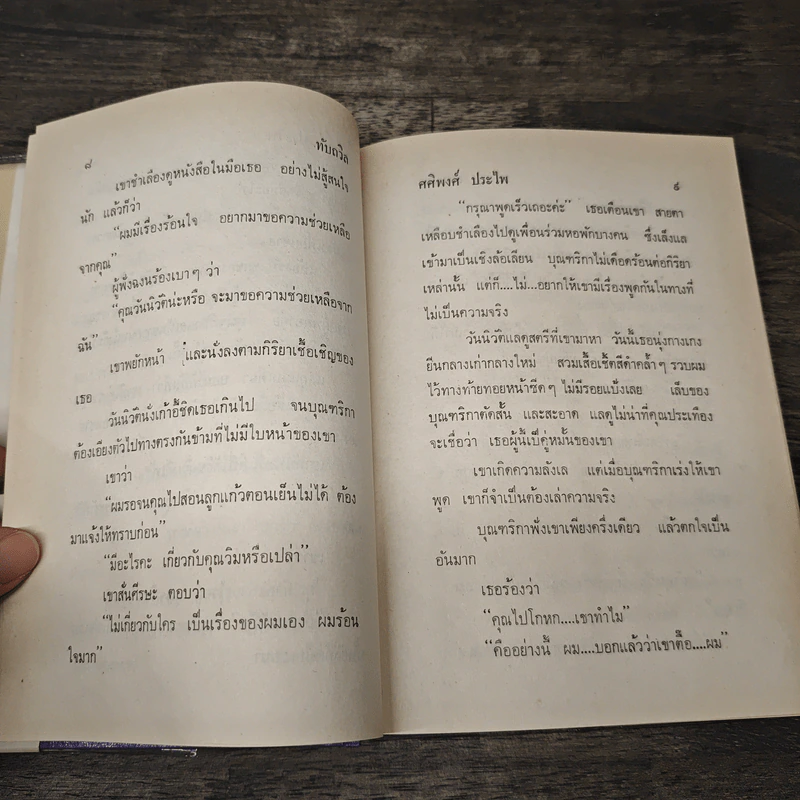 ๘
ทับถวิล
เขาชำเลืองดูหนังสือในมือเธอ อย่างไม่สู้สนใจ
นัก แล้วก็ว่า
“ผมมีเรื่องร้อนใจ อยากมาขอความช่วยเหลือ
จากคุณ”
ผู้ฟังฉงนร้องเบาๆ ว่า
“คุณวันนิวัติน่ะหรือ จะมาขอความช่วยเหลือจาก
ฉัน”
เขาพยักหน้า และนั่งลงตามกิริยาเชื้อเชิญของ
เธอ
วันนิวัตินั่งเก้าอี้ชิดเธอเกินไป จนบุณฑริกา
ต้องเอียงตัวไปทางตรงกันข้ามที่ไม่มีใบหน้าของเขา
เขาว่า
“ผมรอจนคุณไปสอนลูกแก้วตอนเย็นไม่ได้ ต้อง
มาแจ้งให้ทราบก่อน”
“มีอะไรคะ เกี่ยวกับคุณวิมหรือเปล่า”
เขาสั่นศีรษะ ตอบว่า
“ไม่เกี่ยวกับใคร เป็นเรื่องของผมเอง ผมร้อน
ใจมาก”
ศศิพงศ์ ประไพ
๙
“กรุณาพูดเร็วเถอะค่ะ” เธอเตือนเขา สายตา
เหลือบชำเลืองไปดูเพื่อนร่วมหอพักบางคน ซึ่งเล็งแล
เข้ามาเป็นเชิงล้อเลียน บุณฑริกาไม่เดือดร้อนต่อกิริยา
เหล่านั้น แต่ก็....ไม่...อยากให้เขามีเรื่องพูดกันในทางที่
ไม่เป็นความจริง
วันนิวัติแลดูสตรีที่เขามาหา วันนี้เธอนุ่งกางเกง
ยีนกลางเก่ากลางใหม่ สวมเสื้อเชิ้ตสีดำคล้ำๆ รวบผม
ไว้ทางท้ายทอยหน้าซีดๆ ไม่มีรอยแป้งเลย เล็บของ
บุณฑริกาตัดสั้น และสะอาด แลดูไม่น่าที่คุณประเทือง
จะเชื่อว่า เธอผู้นี้เป็คู่หมั้นของเขา
เขาเกิดความลังเล แต่เมื่อบุณฑริกาเร่งให้เขา
พูด เขาก็จำเป็นต้องเล่าความจริง
บุณฑริกาฟังเขาเพียงครึ่งเดียว แล้วตกใจเป็น
อันมาก
เธอร้องว่า
“คุณไปโกหก....เขาทำไม”
“คืออย่างนี้ ผม....บอกแล้วว่าเขาตื๊อ....ผม”